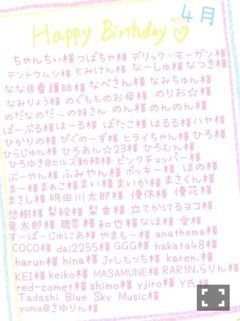 4月
Happy Birthday
ちゃんちい様 つばちゃ様 デリック・モーガン様
テントウムシ様 とみけん様 なーしゅ様 なつき様
なな@看護師様 なべさん様 なみちゅん様
なみりょう様 のぐものお母様 のりお☆様
のだなのだ〜の妹さん のん様 のんのん様
ぱーぷる様 はーる様 ばたこ様 はるる様 ハヤ様
ひかりの様 びぐのーず様 ヒライちゃん様 ひろ様
ひらじゅん様 ひろあん☆23様 ひろむん様
ひろゆき@ヒルズ勤務様 ピンクチョッパー様
ぷーやん様 ふみやん様 ポッキー様 ほの様
まー様 まぁこ様 まい様 まいか様 まさくん様
まさし様 明田川太郎様 優係様 優花様
悠樹様 梨絵様 梨香様 立てかけるヨコ様
竜太郎様 琉奈様 和也様 なほ様 愛様
すーぱーじゅにあ様 やまもー様 anathema様
COCO様 dai2255様 GGG様 hakata48様
harun様 hina様 Jrしもっち様 karen.様
KEI様 keiko様 MASAMUNE様 RAR1N.らりん様
red-comet様 shimo様 yjiro様 Y氏様
Tadashi Blue Sky Music様
yuma@さゆりん様